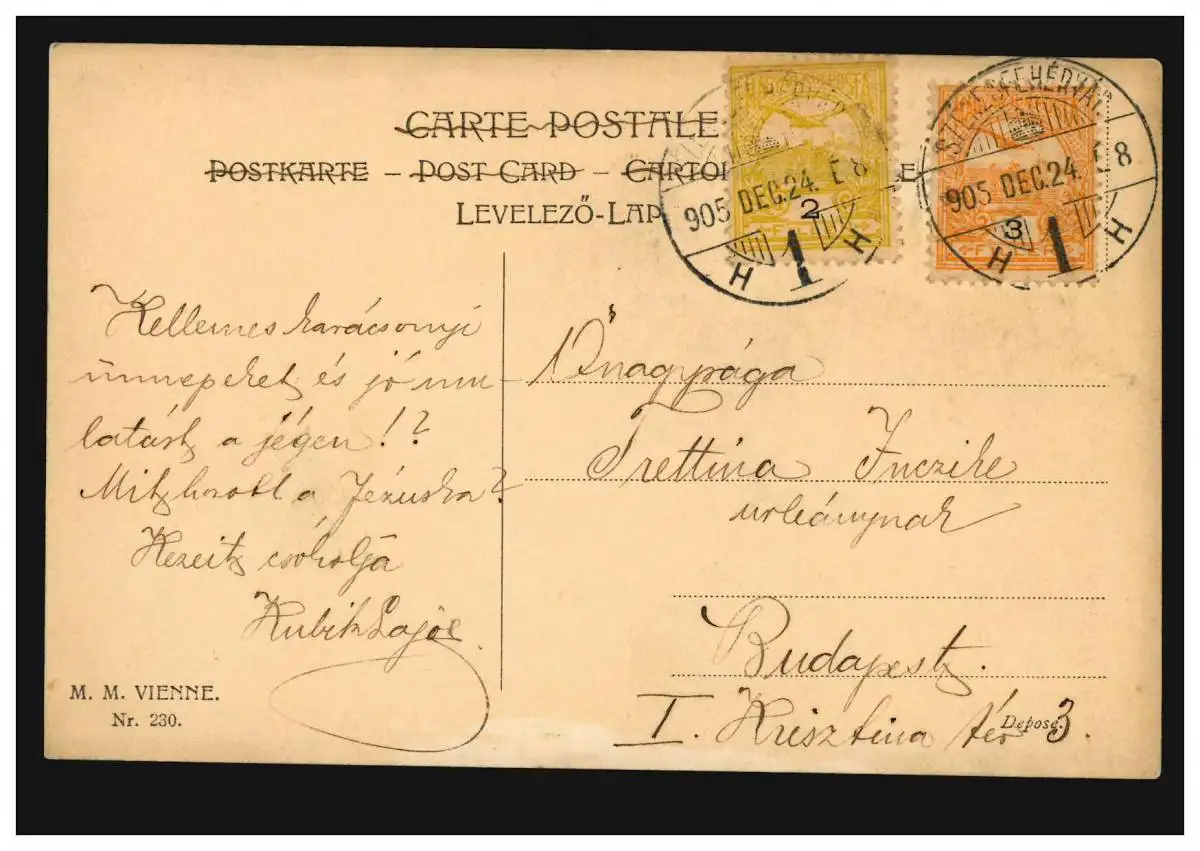 CARTE POSTALE
POSTKARTE – POST CARD –
LEVELEZŐ-LAP
2
3
SZÉKESFEHÉRVÁR
905 DEC. 24. É 8
H 1 H
905 DEC. 24. É 8
H 1 H
Kellemes karácsonyi
ünnepeket és jó mu-
latást a jégen!?
Mit hozott a Jézuska?
Kezeit csókolja
Kubik Lajos
Őnagysága
Trettina Inczike
urleánynak
Budapest.
I. Krisztina tér 3.
M. M. VIENNE.
Nr. 230.
Deposé.